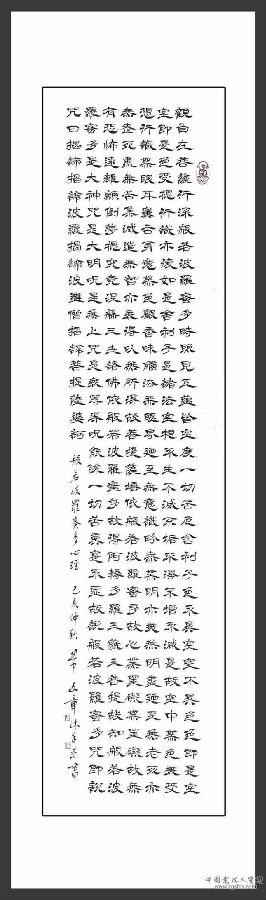 觀自在菩薩行深般若波羅蜜多時照見五蘊皆空度一切苦厄舍利子色不異空空不異色色即是空
空即是色受想行識亦復如是舍利子是諸法空相不生不滅不垢不淨不增不減是故空中無色無受
想行識無眼耳鼻舌身意無色聲香味觸法無眼界乃至無意識界無無明亦無無明盡乃至無老死亦
無老死盡無苦集滅道無智亦無得以無所得故菩提薩埵依般若波羅蜜多故心無罣礙無罣礙故無
有恐怖遠離顛倒夢想究竟涅槃三世諸佛依般若波羅蜜多故得阿耨多羅三藐三菩提故知般若波
羅蜜多是大神咒是大明咒是無上咒是無等等咒能除一切苦真實不虛故說般若波羅蜜多咒即說
咒曰揭諦揭諦波羅揭諦波羅僧揭諦菩提薩婆訶
般若波羅蜜多心經 己亥仲秋 書